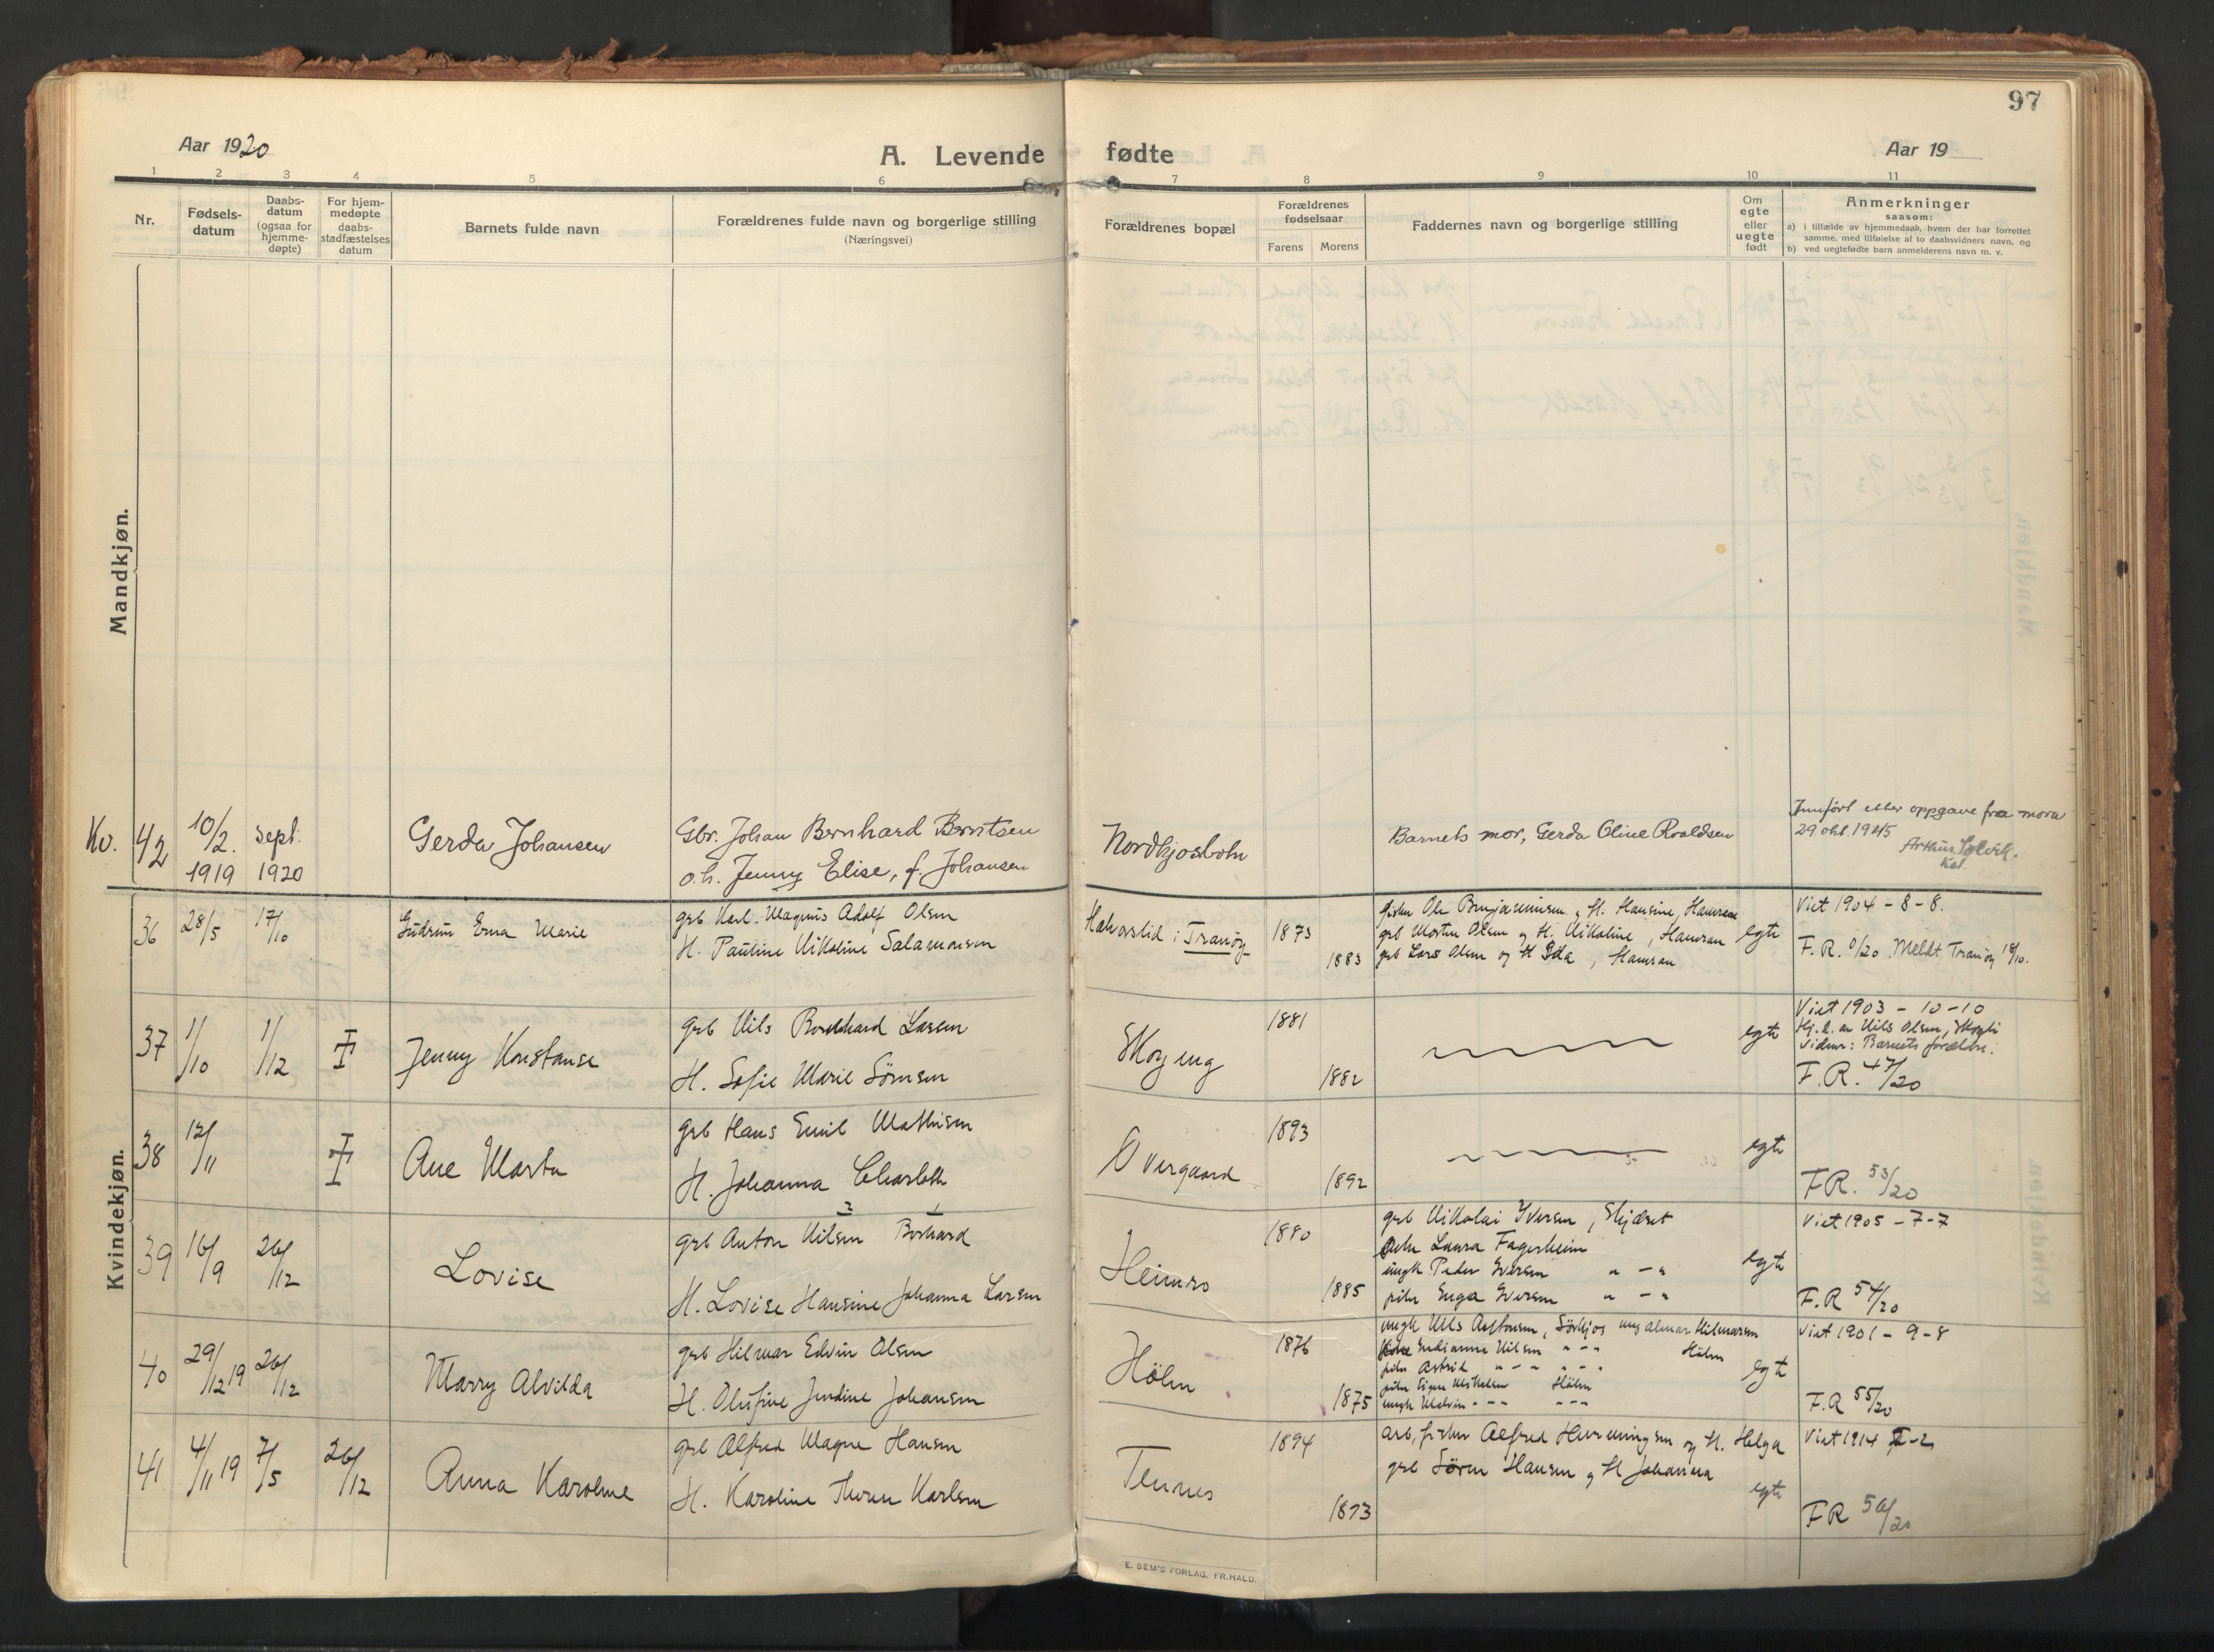 97
Aar 1920
A. Levende fødte
Aar 19
1 2 3 4 5 6 7 8 9 10 11
Nr.
Fødsels-
datum
Daabs-
datum
(ogsaa for
hjemme-
døpte)
For hjem-
medøpte
daabs-
stadfæstelses
datum
Barnets fulde navn
Forældrenes fulde navn og borgerlige stilling
(Næringsvei)
Forældrenes bopæl
Forældrenes
fødselsaar
Farens Morens
Faddernes navn og borgerlige stilling
Om
egte
eller
uegte
født
Anmerkninger
saasom:
a) i tilfælde av hjemmedaab, hvem der har forrettet
samme, med tilføielse af to daabsvidners navn, og
b) ved uegtefødte barn anmelderens navn m. v.
Mandkjøn.
Kv. 42
10/2.
1919
sept.
1920
Gerda Johansen
Gbr. Johan Bernhard Berntsen
o.h. Jenny Elise, f. Johansen
Nordkjosbotn
Barnets mor, Gerda Oline Roaldsen
Innført etter oppgave fra mora
29 okt. 1945
Kvindekjøn.
36
28/5
17/10
Gudrun Erna Marie
grb Karl Magnus Adolf Olsen
H. Pauline Nikoline Salamonsen
i Tranöy
1873
1883
grb Morten Olsen og H. Nikoline, Hamran
grb Lars Olsen og H Ida, Hamran
egte
Viet 1904 - 8 - 8.
Meldt Tranöy 18/10.
37
1/10
1/12
Jenny Konstanse
grb Nils Larsen
H. Sofie Marie Sörnsen
Skogeng
1881
1882
egte
Viet 1903 - 10 - 10
Hj. d. av Nils Olsen, Skogli
Vidner: Barnets forældre.
F.R. 47/20
38
12/11
Ane Marta
grb Hans Emil Mathisen
H. Johanna Charlotte
Overgaard
1893
1892
egte
F.R. 53/20
39
16/9
26/12
Lovise
2 1
grb Anton Nilsen Borhard
H. Lovise Hansine Johanna Larsen
Heimro
1880
1885
grb Nikolai Iversen,
Laura Fagerheim
ungk Peder Iversen " - "
pike Inga Iversen " - "
egte
Viet 1905 - 7 - 7
F.R 54/20
40
29/12 19
26/12
Marry Alvilda
grb Hilmar Edvin Olsen
H. Olufine Jendine Johansen
Hölen
1876
1875
pike Astrid " - " " - "
egt
Viet 1901 - 9 - 8
F.R 55/20
41
4/11 19
7/5
26/12
Anna Karoline
grb Alfred Magne Hansen
H. Karoline Therese Karlsen
Tennes
1894
1893
arb, fisker Alfred Henningsen og H. Helga
grb Sören Hansen og H Johanna
egte
Viet 1914
FR 56/20
E. SEM'S FORLAG, FR.HALD.